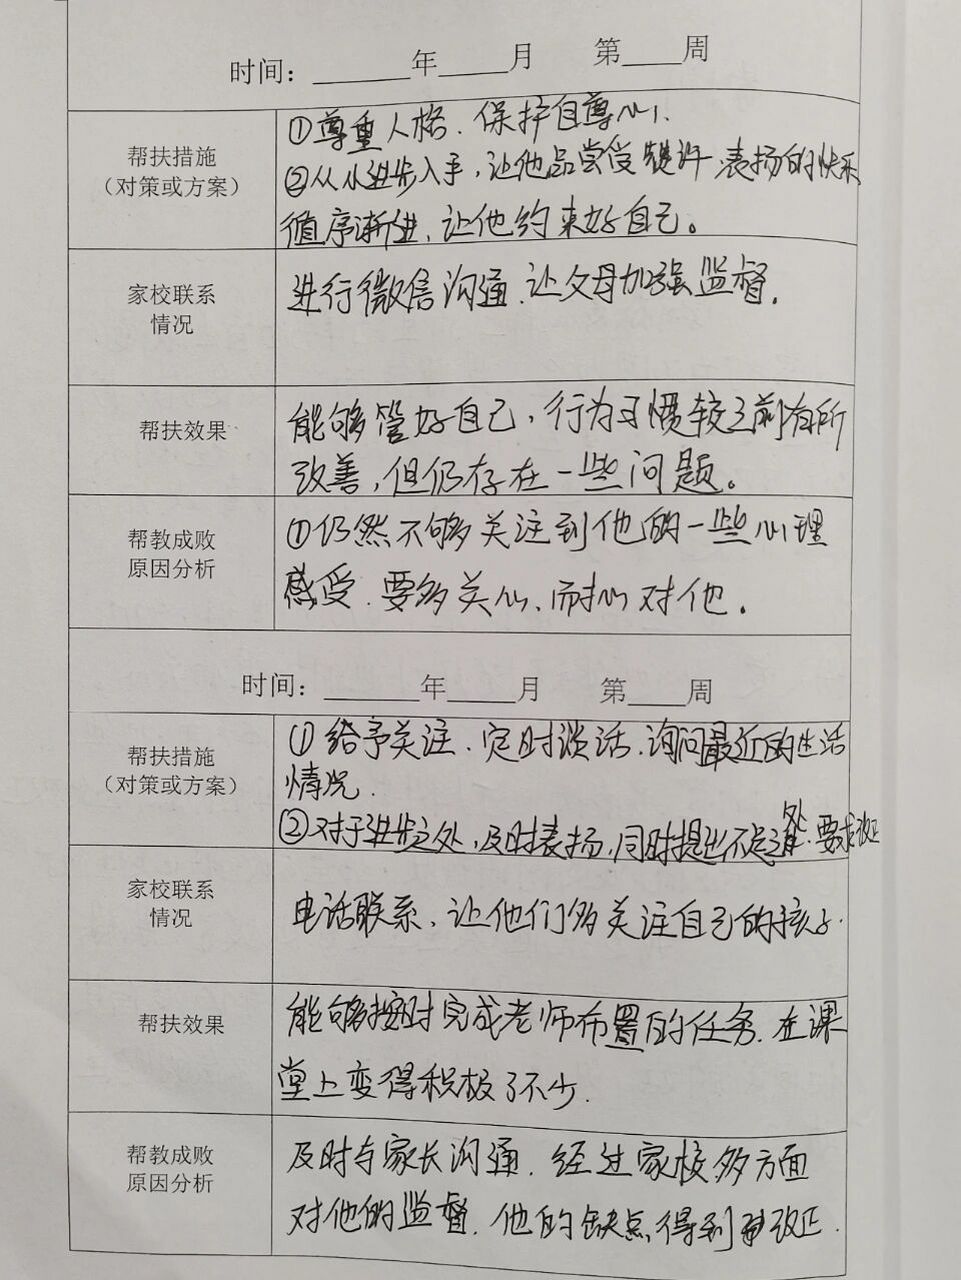 时间：______年____月 第____周
帮扶措施
（对策或方案）
①尊重人格、保护自尊心、
②从小进步入手，让他品尝受赞许、表扬的快乐
循序渐进，让他约束好自己。
家校联系
情况
进行微信沟通、让父母加强监督。
帮扶效果
能够管好自己，行为习惯较之前有所
改善，但仍存在一些问题。
帮教成败
原因分析
①仍然不够关注到他的一些心理
感受、要多关心、耐心对他。
时间：______年____月 第____周
帮扶措施
（对策或方案）
①给予关注、定时谈话、询问最近的生活
情况、
②对于进步之处，及时表扬，同时提出不足之处、要求改正
家校联系
情况
电话联系、让他们多关注自己的孩子.
帮扶效果
能够按时完成老师布置的任务、在课
堂上变得积极了不少.
帮教成败
原因分析
及时与家长沟通、经过家校多方面
对他的监督、他的缺点得到改正.